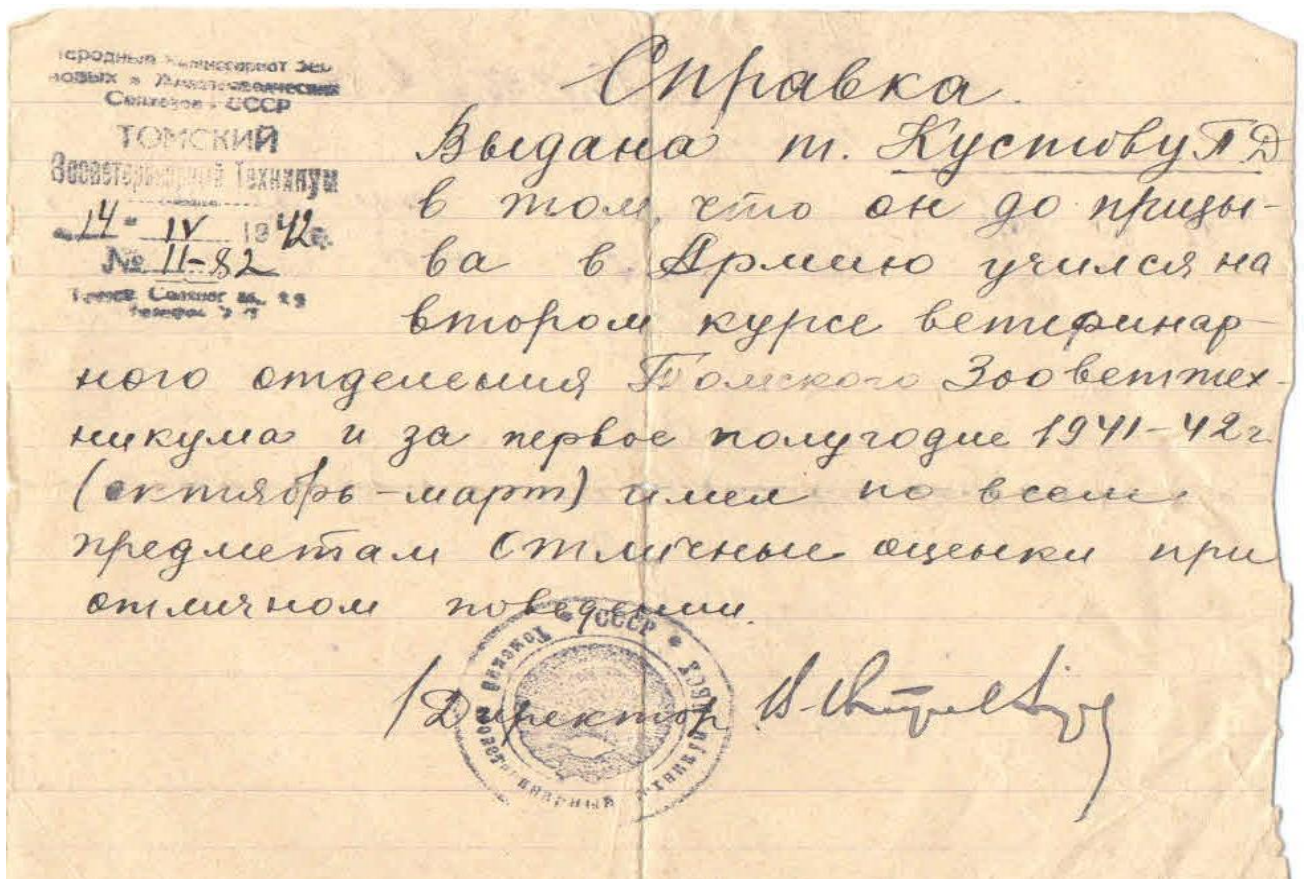 Народный Комиссариат Зер-
новых и Животноводческих
Совхозов СССР
ТОМСКИЙ
Зооветеринарный Техникум
"14" IV 1942г.
№ 11-82
Справка
Выдана т. Кустову П Д
в том, что он до призы-
ва в Армию учился на
втором курсе ветеринар-
ного отделения Томского Зооветтех-
никума и за первое полугодие 1941-42г
(октябрь-март) имел по всем
предметам отличные оценки при
отличном поведении.
Директор
СССР
Томский зооветеринарный